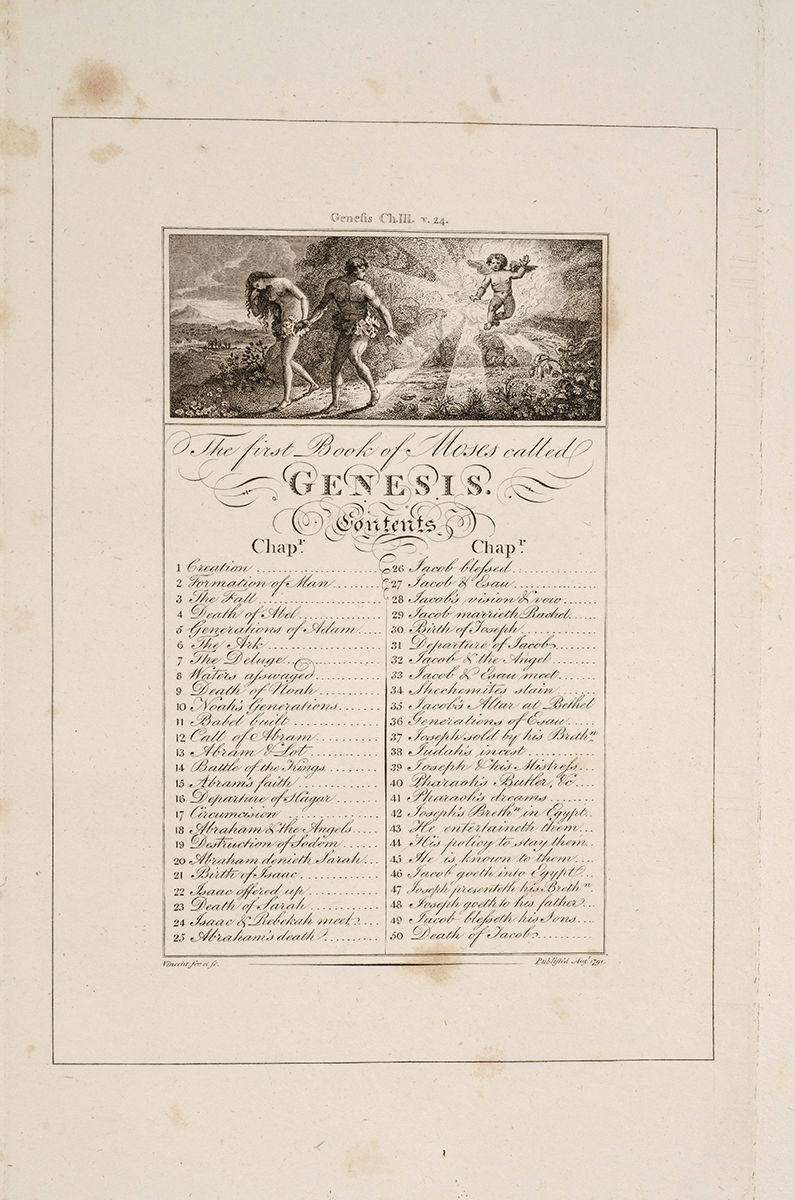 Genesis Ch.III. v. 24.
The first Book of Moses called
GENESIS.
Contents
Chapr.
1 Creation
2 Formation of Man
3 The Fall
4 Death of Abel
5 Generations of Adam
6 The Ark
7 The Deluge
8 Waters asswaged
9 Death of Noah
10 Noah's Generations
11 Babel built
12 Call of Abram
13 Abram & Lot
14 Battle of the Kings
15 Abram's faith
16 Departure of Hagar
17 Circumcision
18 Abraham & the Angels
19 Destruction of Sodom
20 Abraham denieth Sarah
21 Birth of Isaac
22 Isaac offered up
23 Death of Sarah
24 Isaac & Rebekah meet
25 Abraham's death
Chapr.
26 Jacob blessed
27 Jacob & Esau
28 Jacob's vision & vow
29 Jacob marrieth Rachel
30 Birth of Joseph
31 Departure of Jacob
32 Jacob & the Angel
33 Jacob & Esau meet
34 Shechemites slain
35 Jacob's Altar at Bethel
36 Generations of Esau
37 Joseph sold by his Brethn.
38 Judah's incest
39 Joseph & his Mistress
40 Pharaoh's Butler, &c
41 Pharaoh's dreams
42 Joseph's Brethn. in Egypt
43 He entertaineth them
44 His policy to stay them
45 He is known to them
46 Jacob goeth into Egypt
47 Joseph presenteth his Brethn.
48 Joseph goeth to his father
49 Jacob blesseth his Sons
50 Death of Jacob
Vincent inv. et sc.
Publish'd Augt. 1791.